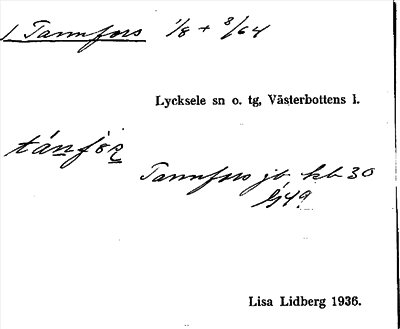 1 Tannfors 1/8 + 3/64
Lycksele sn o. tg, Västerbottens l.
tánfòr
Tannfors jb kb 30
Lisa Lidberg 1936.